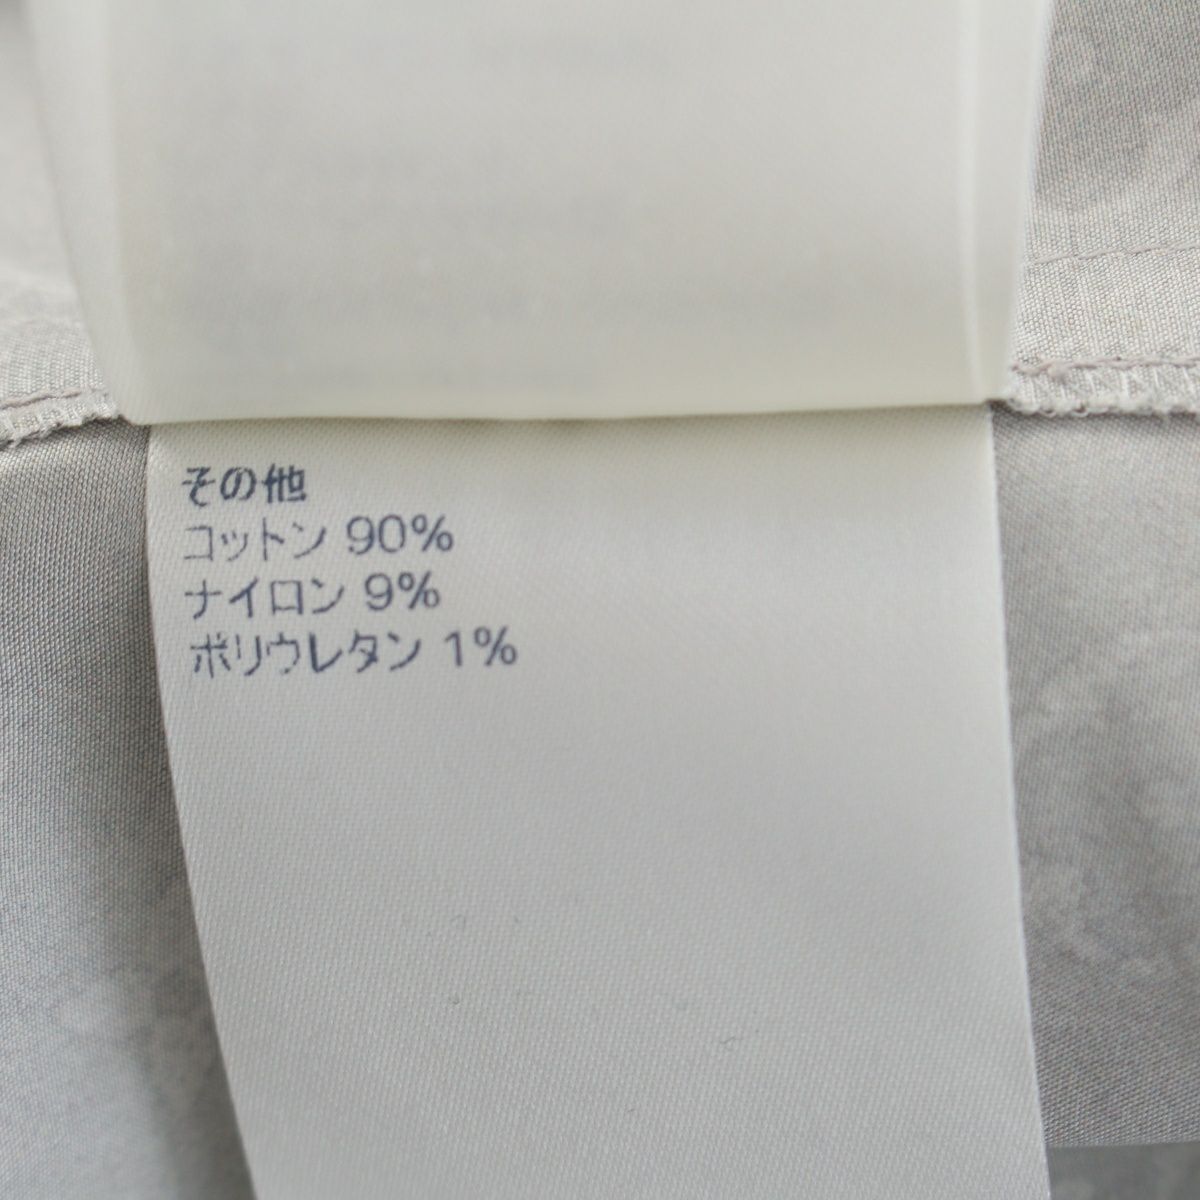 その他
コットン 90%
ナイロン 9%
ポリウレタン 1%